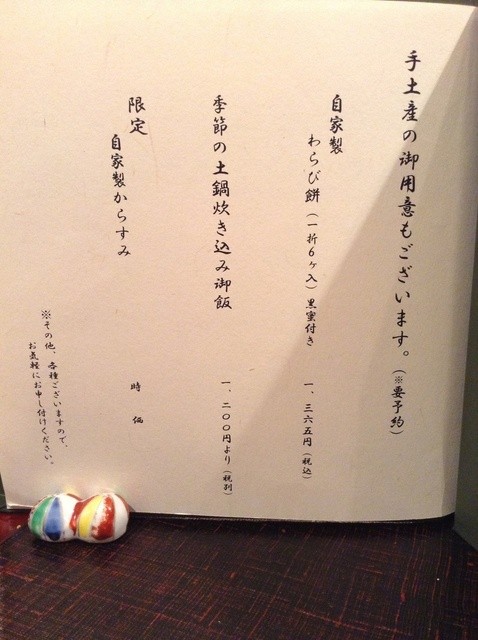 手土産の御用意もございます。(※要予約)
自家製
わらび餅(一折6ヶ入)黒蜜付き 一、三六五円(税込)
季節の土鍋炊き込み御飯 一、二〇〇円より(税別)
限定
自家製からすみ 時価
※その他、各種ございますので、
お気軽にお申し付けください。